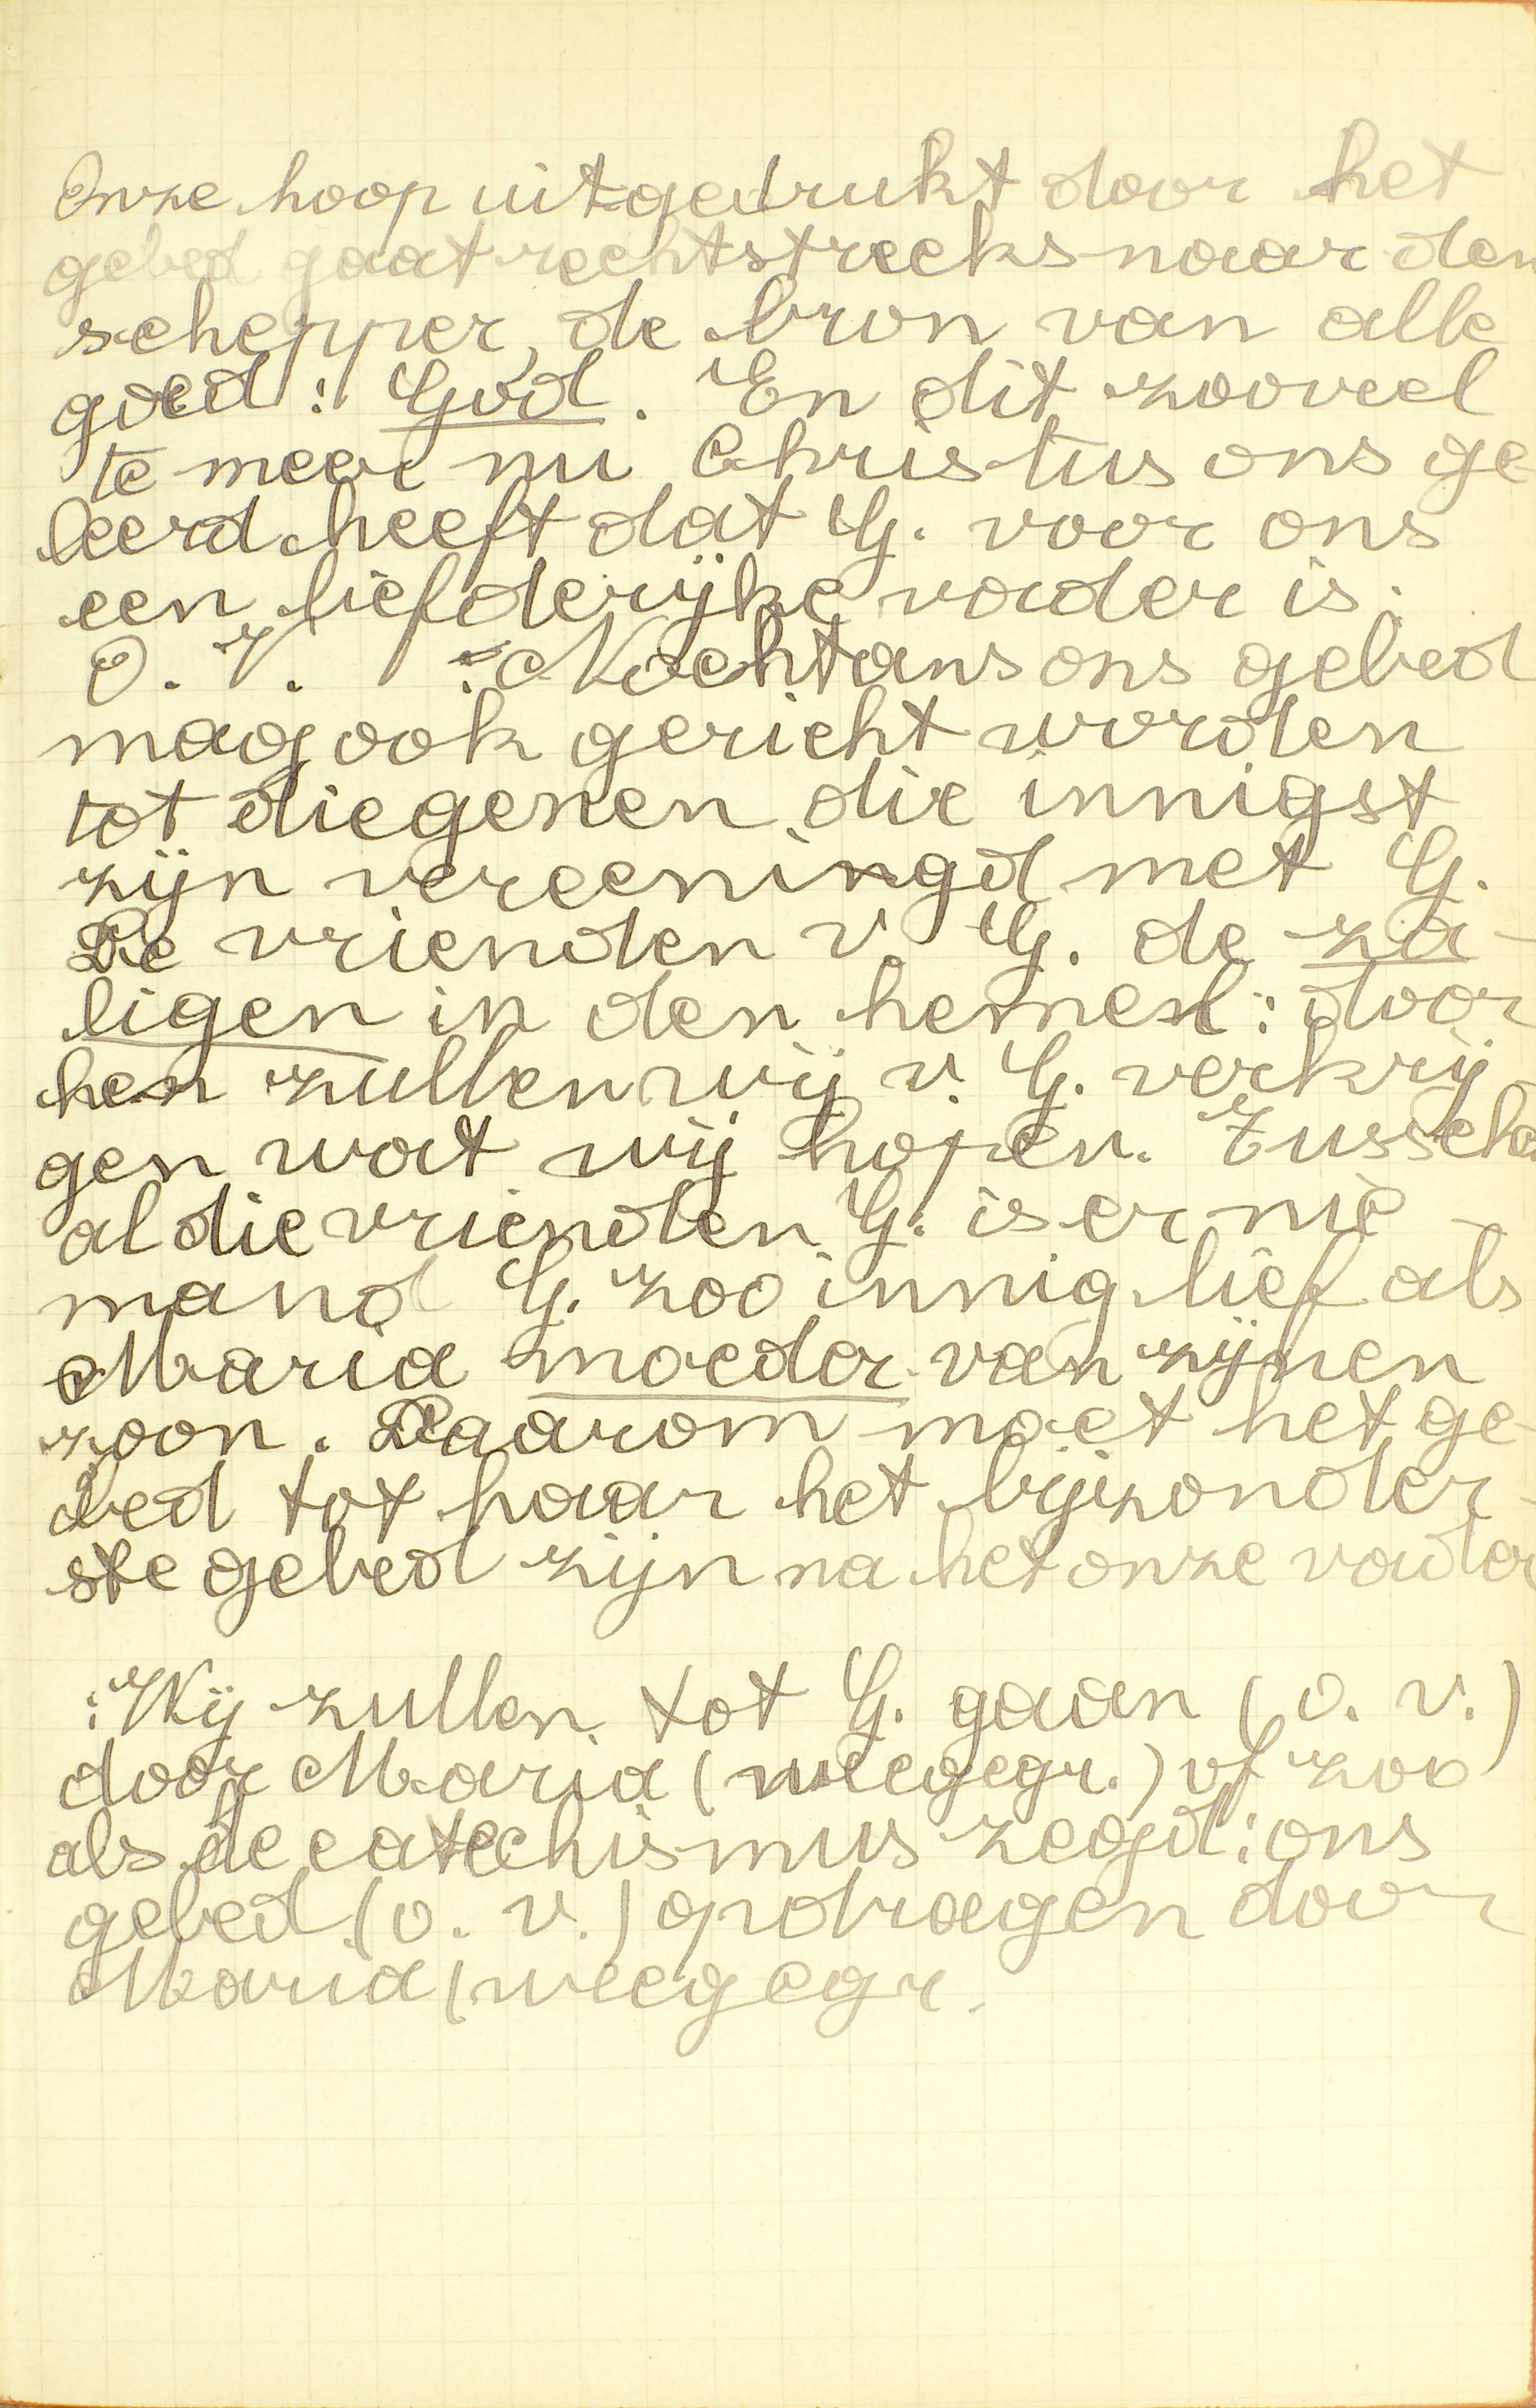 Onze hoop uitgedrukt door het
gebed gaat rechtstreeks naar den
schepper, de bron van alle
goed : God. En dit zooveel
te meer nu Christus ons ge
leerd heeft dat G. voor ons
een liefderijke vader is.
O. V. : Nochtans ons gebed
mag ook gericht worden
tot diegenen die innigst
zijn vereeningd met G.
De vrienden v. G. de za-
ligen in den hemel : door
hen zullen wij v. G. verkrij
gen wat wij hopen. Tusschen
al die vrienden G. is er nie-
mand G. zoo innig lief als
Maria moeder van zijnen
zoon. Daarom moet het ge-
bed tot haar het bijzonder-
ste gebed zijn na het onze vader
: Wij zullen tot G. gaan (o. v.)
door Maria (weegegr.) of zoo
als de catechismus zegd : ons
gebed (o. v.) opdragen door
Maria (weegegr.